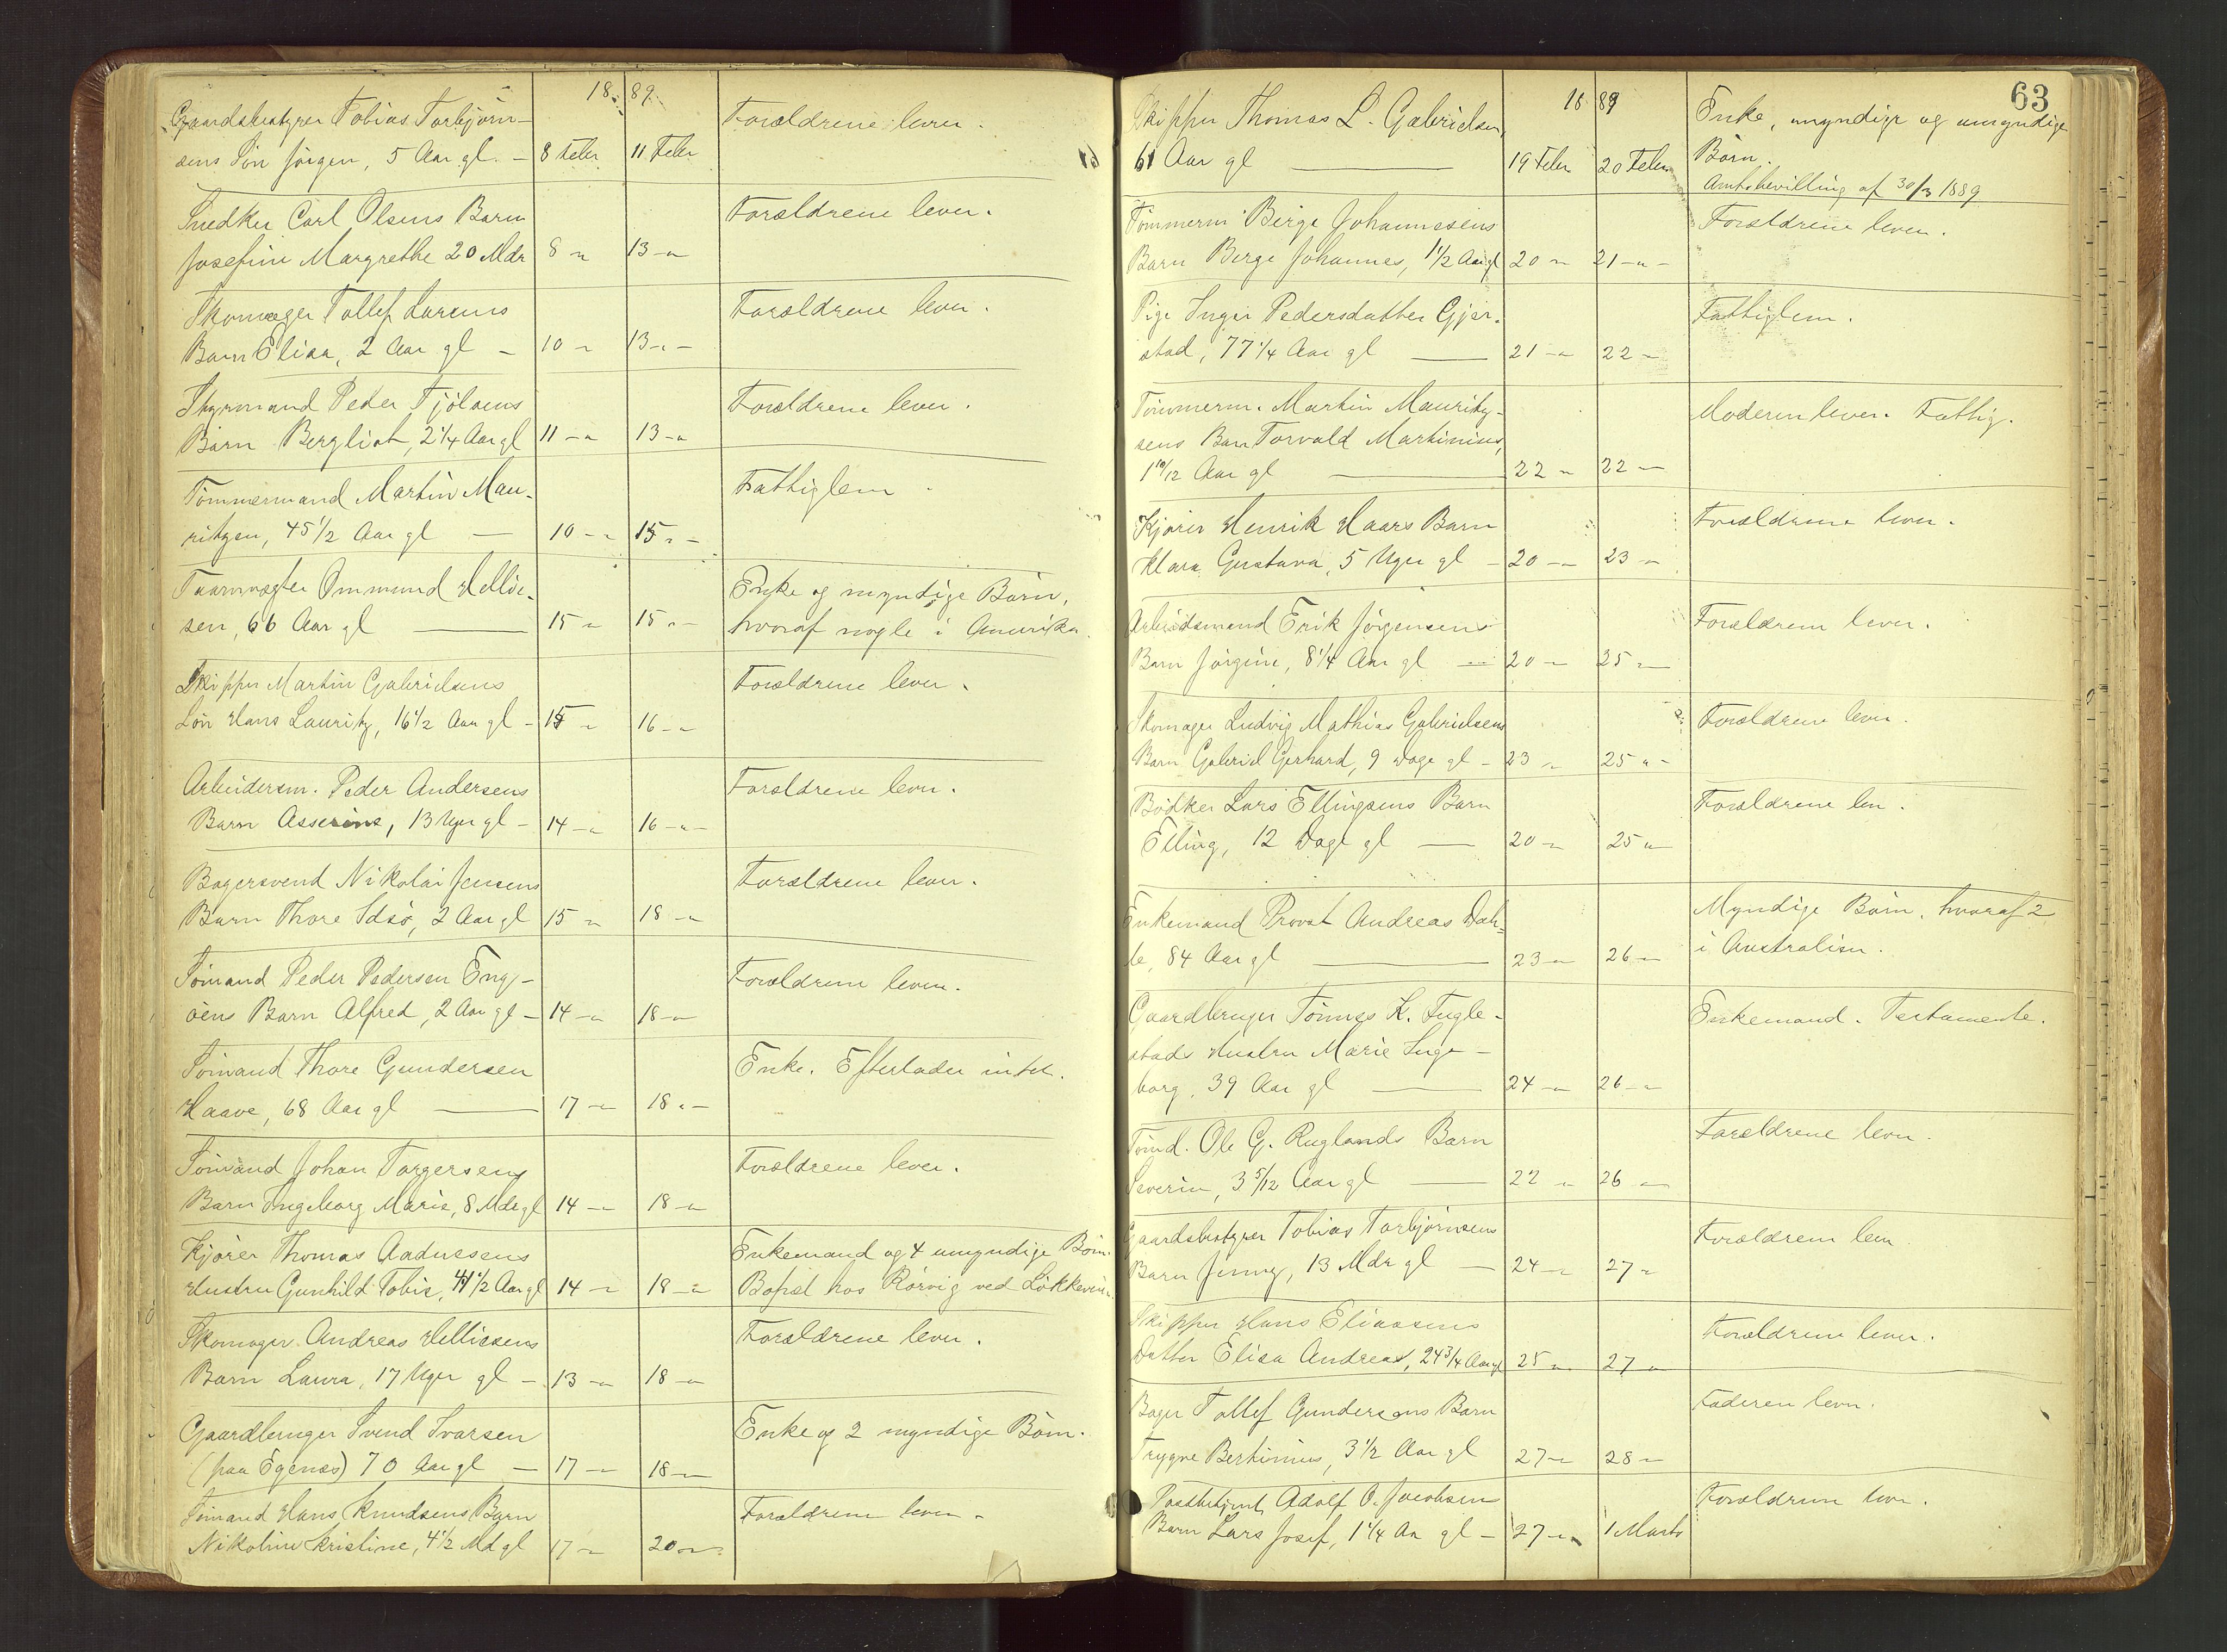 18 89
Gaardsbestyrer Tobias Torbjörn-
sens Sön Jörgen, 5 Aar gl. — 8 Febr 11 Febr Forældrene lever.
Snedker Carl Olsens Barn
Josefine Margrethe 20 Mdr 8 " 13 - " Forældrene lever.
Skomager Tollef Larsens
Barn Elisa, 2 Aar gl — 10 - 13 - " - Forældrene lever.
Styrmand Peder Fjölsens
Barn Bergliot, 2 1/4 Aar gl 11 - " 13 - " Forældrene lever.
Tömmermand Martin Mau-
ritzen, 45 1/2 Aar gl — 10 - " 15 " - Fattiglem.
Taarnvægter Ommund Hellie-
sen, 66 Aar gl — 15 - 15 " - Enke og myndige Börn,
hvoraf nogle i Amerika.
Skipper Martin Gabrielsens
Sön Hans Lauritz, 16 1/2 Aar gl - 15 " 16 - " Forældrene lever.
Arbeidersm. Peder Andersens
Barn Asserine, 13 Uger gl - 14 - " 16 - " - Forældrene lever.
Bagersvend Nikolai Jensens
Barn Thore Idsö, 2 Aar gl 15 " 18 - " Forældrene lever.
Sömand Peder Pedersen Eng-
öens Barn Alfred, 2 Aar gl - 14 - " 18 - " Forældrene lever.
Sömand Thore Gundersen
Haave, 68 Aar gl — 17 - " 18 " - Enke. Efterlader intet.
Sömand Johan Torgersens
Barn Ingeborg Marie, 8 Mdr gl 14 - " 18 - " Forældrene lever.
Kjörer Thomas Aadnesens
Hustru Gunhild Tobie, 41 1/2 Aar gl 14 - " 18 - " Enkemand og 4 umyndige Börn.
Bopæl hos Rörvig ved Lökkeveien.
Skomager Andreas Helliesens
Barn Laura, 17 Uger gl - 13 - " 18 - " Forældrene lever.
Gaardbruger Svend Ivarsen
(paa Egenæs) 70 Aar gl — 17 - " 18 - " Enke og 2 myndige Börn.
Sömand Hans Knudsens Barn
Nikoline Kristine, 4 1/2 Md gl 17 - " 20 - " Forældrene lever.
63
18 89
Skipper Thomas L. Gabrielsen,
61 Aar gl — 19 Febr 20 Febr Enke, myndige og umyndige
Börn.
Amtsbevilling af 30/3 1889
Tömmerm Börge Johannesens
Barn Börge Johannes, 1 1/2 Aar gl 20 - " 21 - " - Forældrene lever.
Pige Inger Pedersdatter Gjer-
stad, 77 1/4 Aar gl — 21 - " 22 - Fattiglem.
Tömmerm. Martin Mauritz-
sens Barn Torvald Martinius,
1 10/12 Aar gl — 22 - " 22 - Moderen lever. Fattig.
Kjörer Henrik Haars Barn
Klara Gustava, 5 Uger gl - 20 - " 23 - " Forældrene lever.
Arbeidsmand Erik Jörgensens
Barn Jörgine, 8 1/4 Aar gl — 20 - " 25 - Forældrene lever.
Skomager Ludvig Mathias Gabrielsens
Barn Gabriel Gerhard, 9 Dage gl - 23 " 25 " - Forældrene lever.
Bödker Lars Ellingsens Barn
Elling, 12 Dage gl — 20 - " 25 " Forældrene lev.
Enkemand Provst Andreas Dah-
le, 84 Aar gl — 23 - " 26 - " Myndige Börn, hvoraf 2
i Australien.
Gaardbruger Tönnes K. Fugle-
stads Hustru Marie Inge-
borg, 39 Aar gl — 24 - " 26 - " Enkemand. Testamente.
Tömd. Ole G. Ruglands Barn
Severin, 3 5/12 Aar gl — 22 - " 26 - " Forældrene lever.
Gaardsbestyrer Tobias Torbjörnsens
Barn Jenny, 13 Mdr gl — 24 - " 27 - Forældrene lever
Skipper Hans Eliassens
Datter Elisa Andrea, 24 3/4 Aar gl 25 - " 27 - " Forældrene lever.
Bager Tollef Gundersens Barn
Trygve Bertinius, 3 1/2 Aar gl 27 - " 28 - Faderen lever.
Postbetjent Adolf O. Jacobsen
Barn Lars Josef, 1 1/4 Aar gl - 27 - " 1 Marts Forældrene lever.